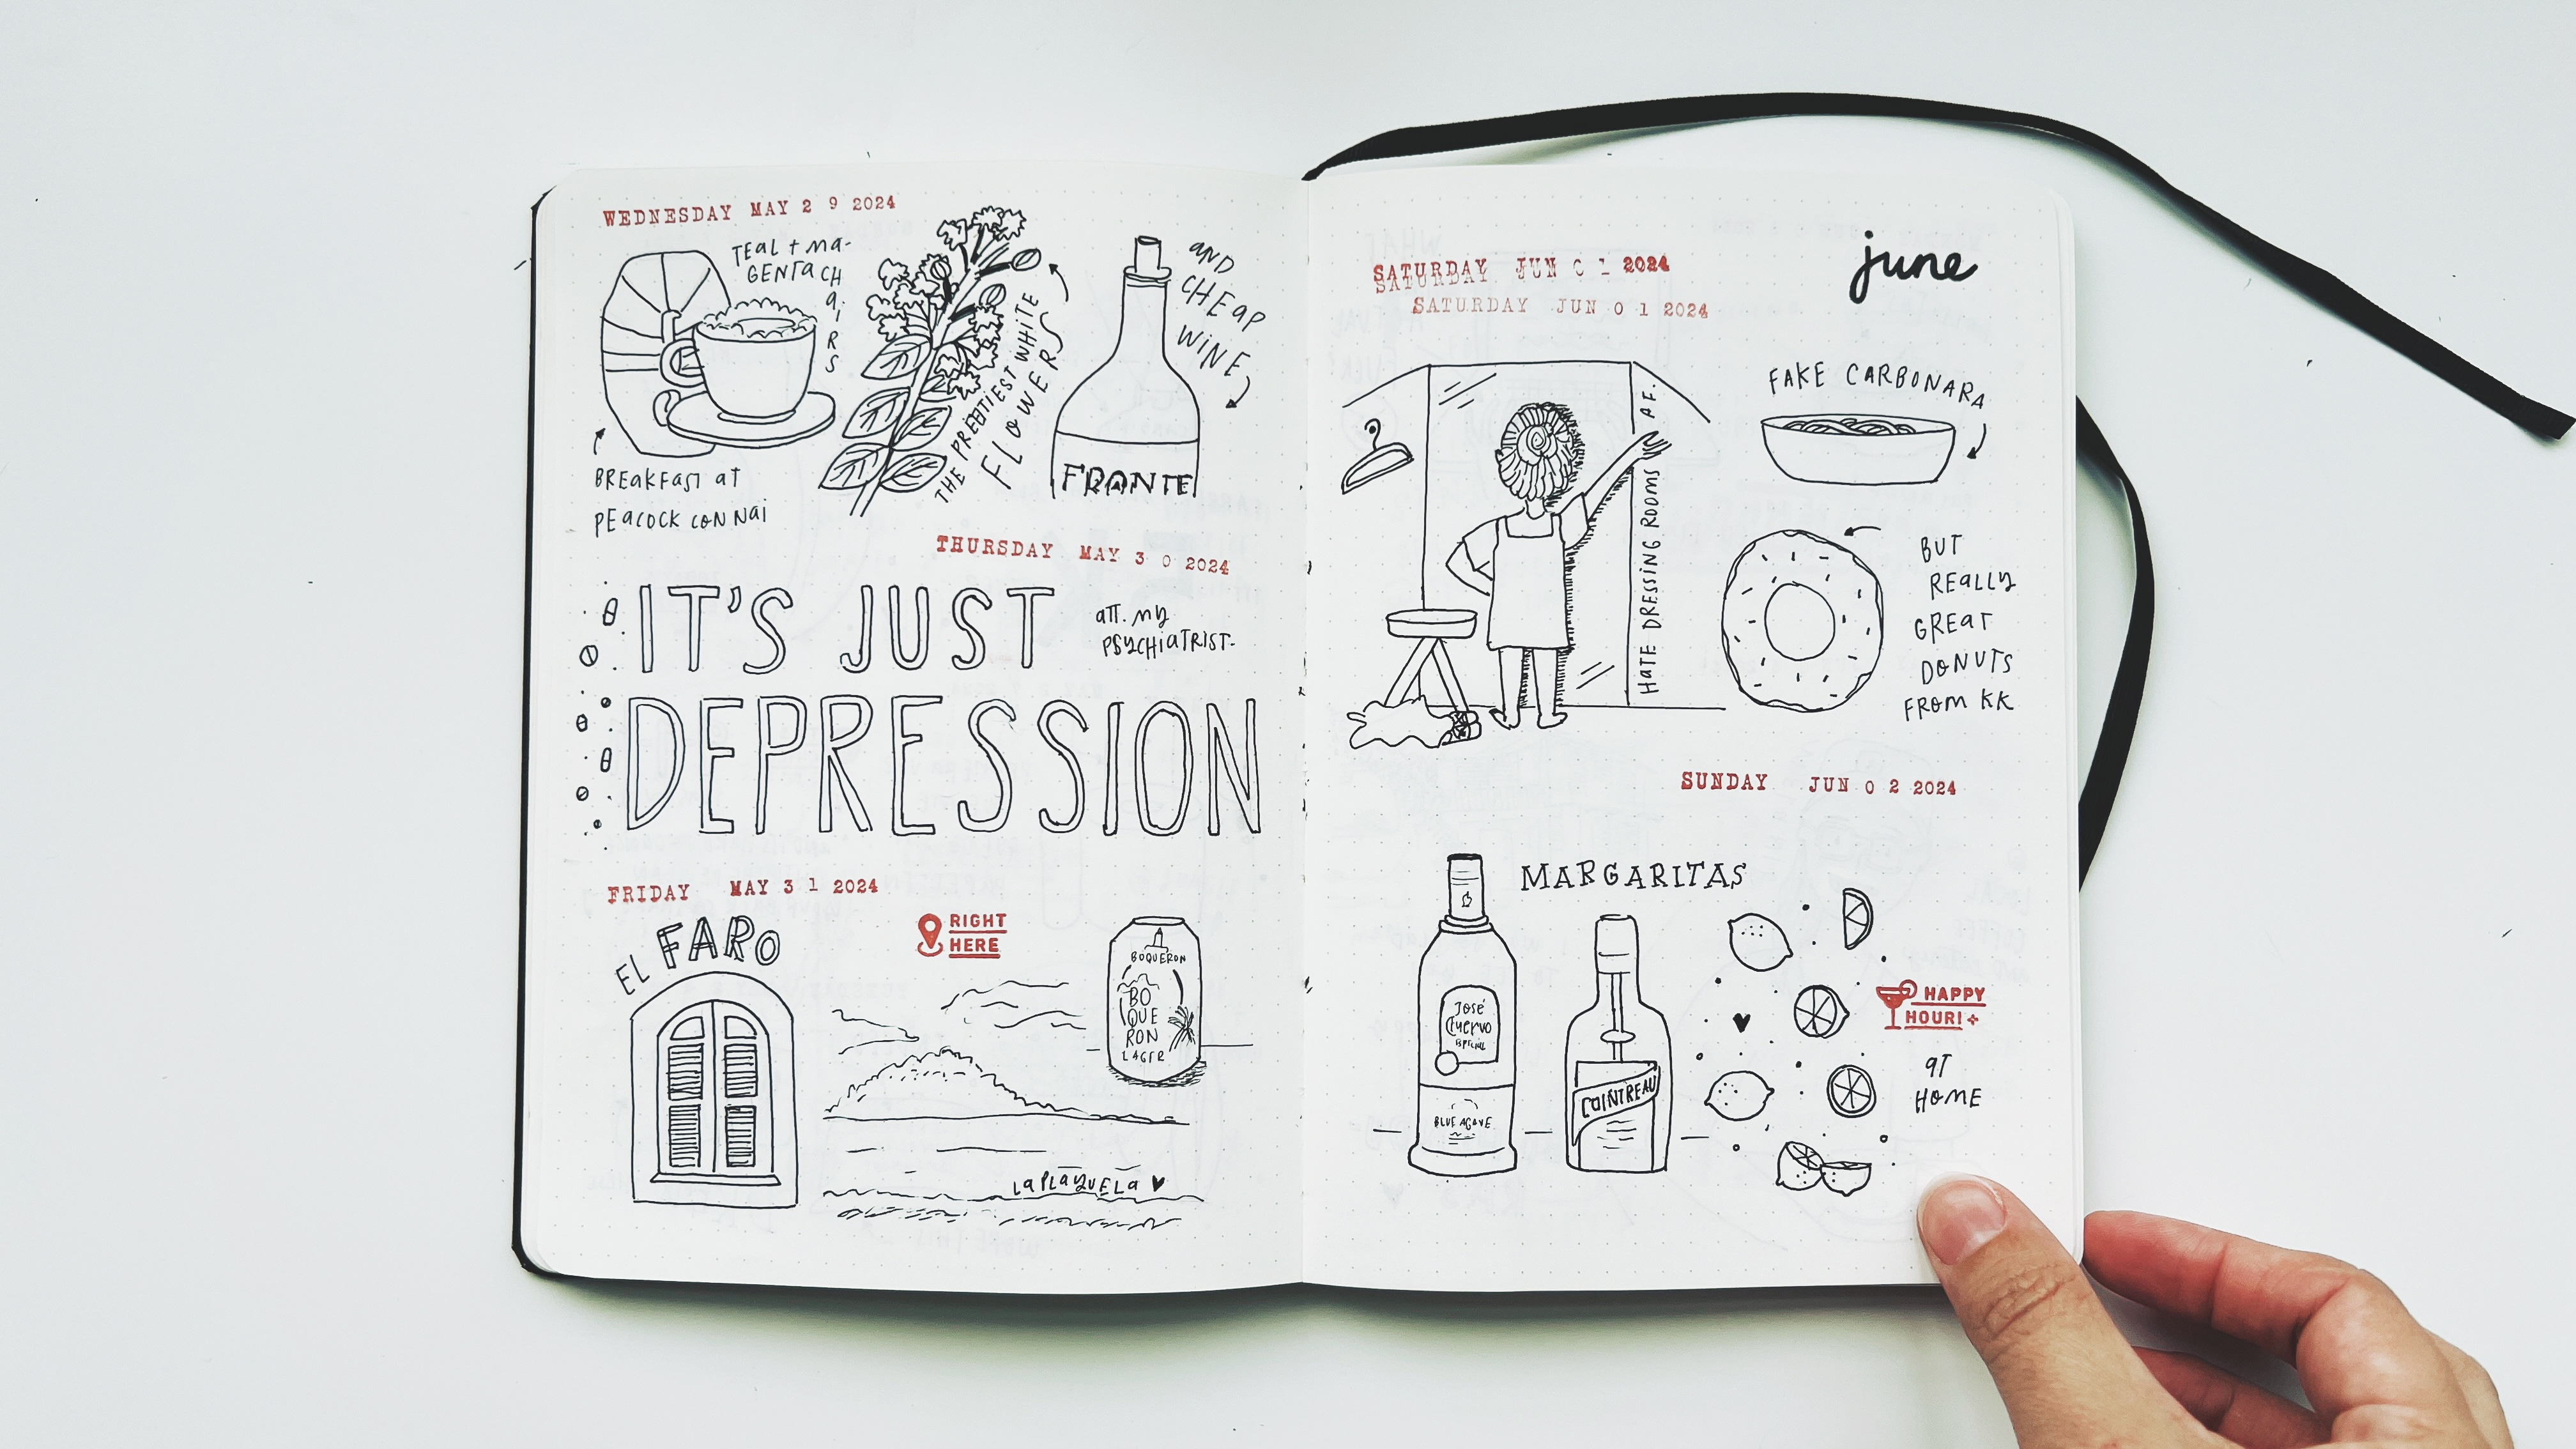 WEDNESDAY MAY 29 2024
TEAL + MA-
GENTA CHAIRS
BREAKFAST AT
PEACOCK CON NAI
THE PRETTIEST WHITE
FLOWERS
AND
CHEAP
WINE
FRONTE
THURSDAY MAY 30 2024
IT'S JUST
att. my
PSYCHIATRIST-
DEPRESSION
FRIDAY MAY 31 2024
EL FARO
RIGHT
HERE
BOQUERON
BO
QUE
RON
LAGER
LA PLAYUELA
june
SATURDAY JUN 01 2024
SATURDAY
SATURDAY JUN 01 2024
HATE DRESSING ROOMS AF.
FAKE CARBONARA
BUT
REALLY
GREAT
DONUTS
FROM KK
SUNDAY JUN 02 2024
MARGARITAS
José
Cuervo
ESPECIAL
BLUE AGAVE
COINTREAU
HAPPY
HOUR!
AT
HOME